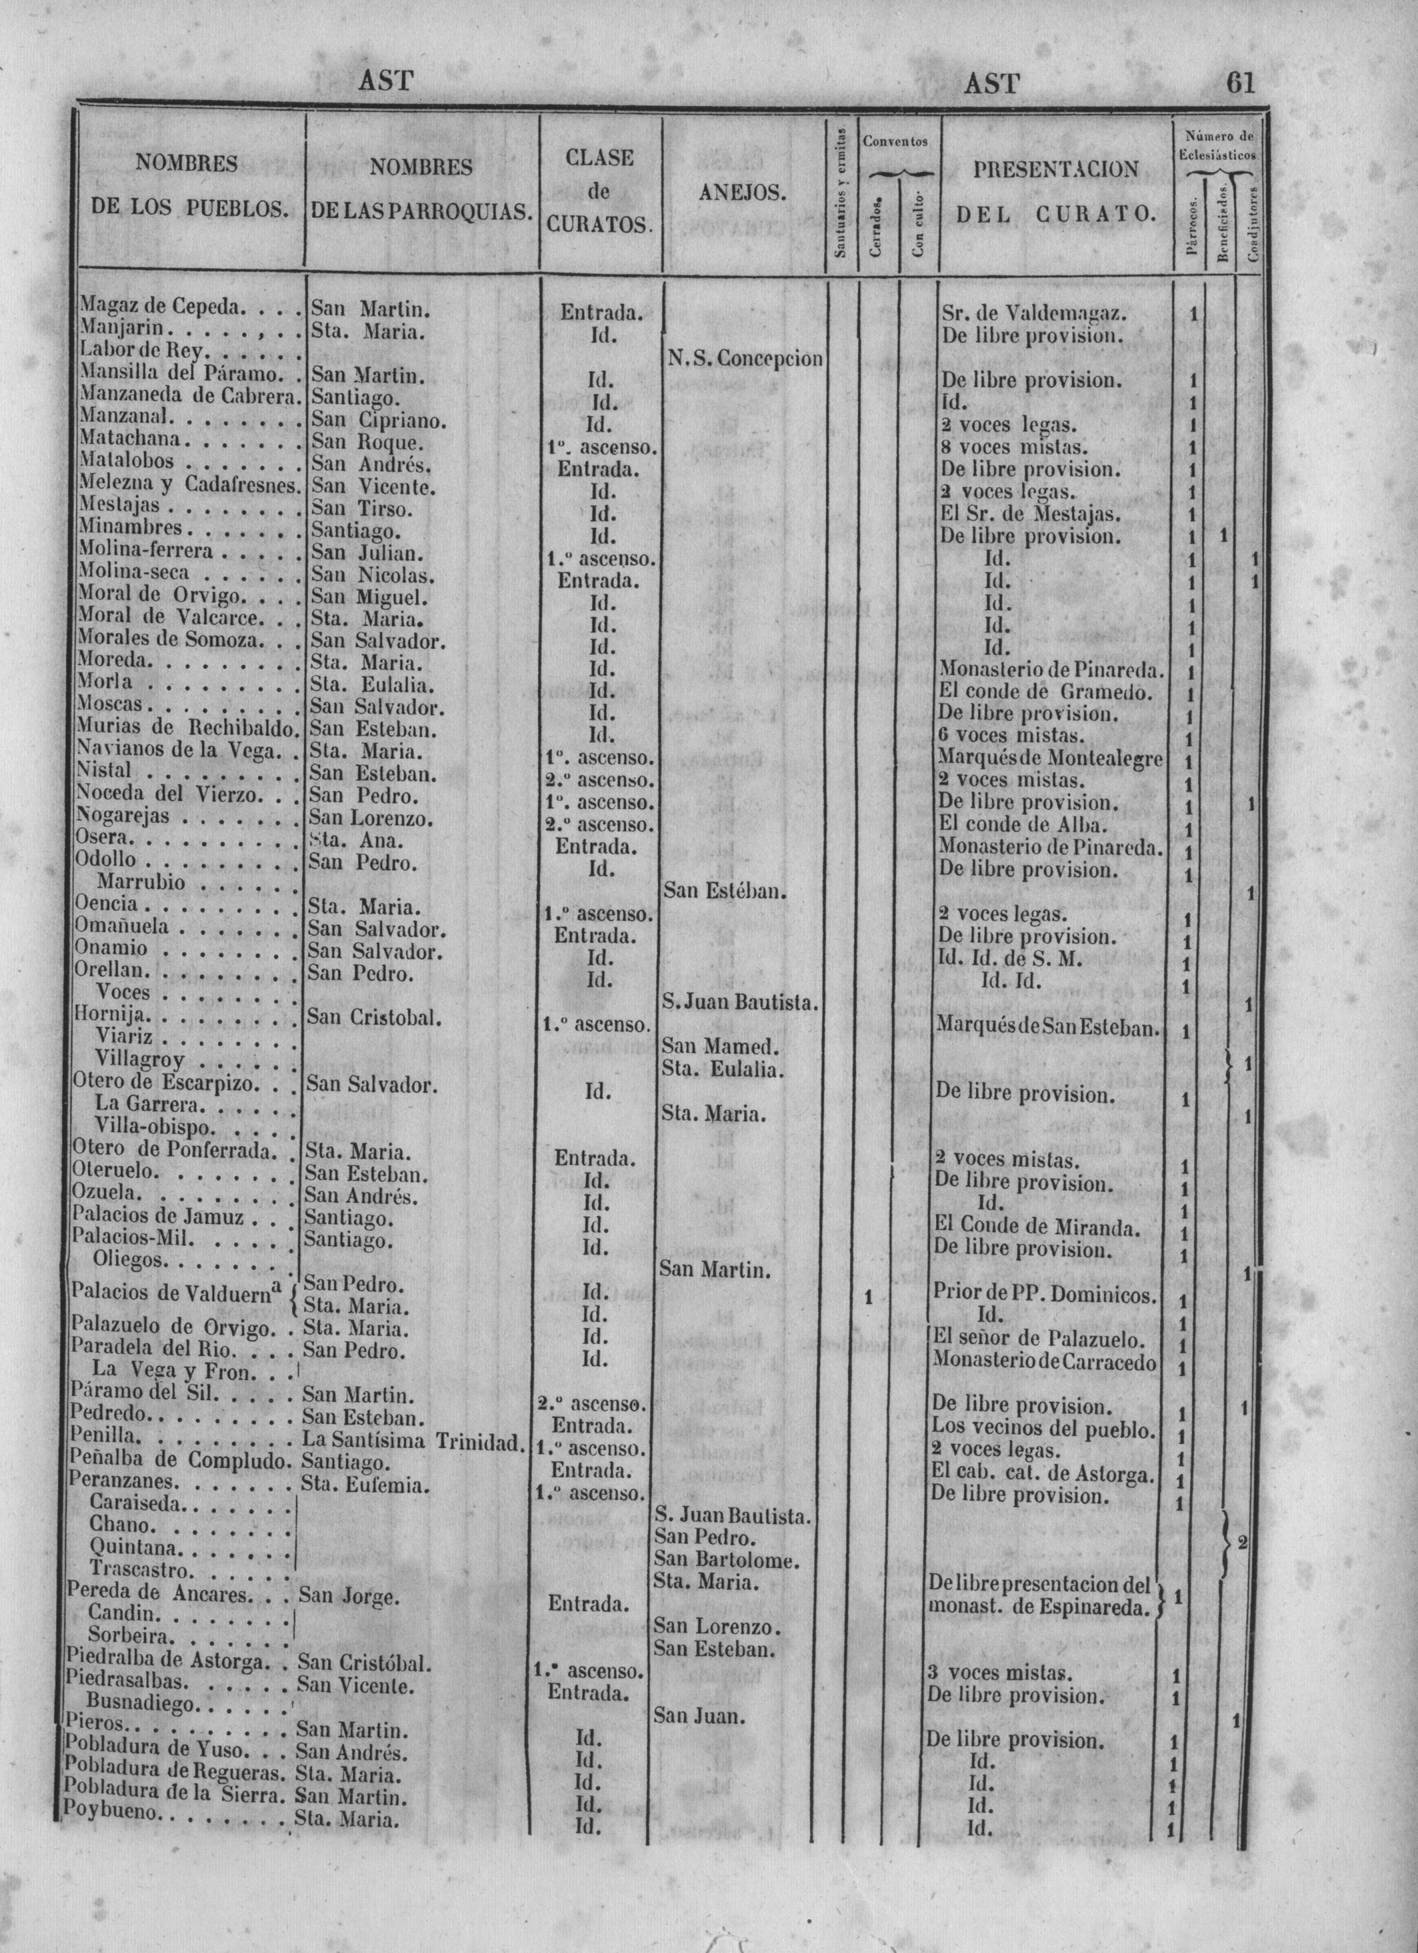 AST AST 61
NOMBRES DE LOS PUEBLOS. NOMBRES DE LAS PARROQUIAS. CLASE de CURATOS. ANEJOS. Santuarios y ermitas Conventos Cerrados. Con culto. PRESENTACION DEL CURATO. Número de Eclesiásticos Párrocos. Beneficiados. Coadjutores
Magaz de Cepeda. . . . San Martin. Entrada. Sr. de Valdemagaz. 1
Manjarin. . . . . , . . Sta. Maria. Id. De libre provision.
Labor de Rey. . . . . . N. S. Concepcion
Mansilla del Páramo. . San Martin. Id. De libre provision. 1
Manzaneda de Cabrera. Santiago. Id. Id. 1
Manzanal. . . . . . . . San Cipriano. Id. 2 voces legas. 1
Matachana. . . . . . . San Roque. 1º. ascenso. 8 voces mistas. 1
Matalobos . . . . . . . San Andrés. Entrada. De libre provision. 1
Melezna y Cadafresnes. San Vicente. Id. 2 voces legas. 1
Mestajas . . . . . . . . San Tirso. Id. El Sr. de Mestajas. 1
Minambres. . . . . . . Santiago. Id. De libre provision. 1 1
Molina-ferrera . . . . . San Julian. 1.º ascenso. Id. 1 1
Molina-seca . . . . . . San Nicolas. Entrada. Id. 1 1
Moral de Orvigo. . . . San Miguel. Id. Id. 1
Moral de Valcarce. . . Sta. Maria. Id. Id. 1
Morales de Somoza. . . San Salvador. Id. Id. 1
Moreda. . . . . . . . . Sta. Maria. Id. Monasterio de Pinareda. 1
Morla . . . . . . . . . Sta. Eulalia. Id. El conde de Gramedo. 1
Moscas. . . . . . . . . San Salvador. Id. De libre provision. 1
Murias de Rechibaldo. San Esteban. Id. 6 voces mistas. 1
Navianos de la Vega. . Sta. Maria. 1º. ascenso. Marqués de Montealegre 1
Nistal . . . . . . . . . San Esteban. 2.º ascenso. 2 voces mistas. 1
Noceda del Vierzo. . . San Pedro. 1º. ascenso. De libre provision. 1 1
Nogarejas . . . . . . . San Lorenzo. 2.º ascenso. El conde de Alba. 1
Osera. . . . . . . . . . Sta. Ana. Entrada. Monasterio de Pinareda. 1
Odollo . . . . . . . . . San Pedro. Id. De libre provision. 1
Marrubio . . . . . . San Estéban. 1
Oencia . . . . . . . . . Sta. Maria. 1.º ascenso. 2 voces legas. 1
Omañuela . . . . . . . San Salvador. Entrada. De libre provision. 1
Onamio . . . . . . . . San Salvador. Id. Id. Id. de S. M. 1
Orellan. . . . . . . . . San Pedro. Id. Id. Id. 1
Voces . . . . . . . . S. Juan Bautista. 1
Hornija. . . . . . . . . San Cristobal. 1.º ascenso. Marqués de San Esteban. 1
Viariz . . . . . . . . San Mamed.
Villagroy . . . . . . Sta. Eulalia. } 1
Otero de Escarpizo. . . San Salvador. Id. De libre provision. 1
La Garrera. . . . . . Sta. Maria. 1
Villa-obispo. . . . .
Otero de Ponferrada. . Sta. Maria. Entrada. 2 voces mistas. 1
Oteruelo. . . . . . . . San Esteban. Id. De libre provision. 1
Ozuela. . . . . . . . . San Andrés. Id. Id. 1
Palacios de Jamuz . . . Santiago. Id. El Conde de Miranda. 1
Palacios-Mil. . . . . . Santiago. Id. De libre provision. 1
Oliegos. . . . . . . . San Martin. 1
Palacios de Valduernª { San Pedro. Id. 1 Prior de PP. Dominicos. 1
Sta. Maria. Id. Id. 1
Palazuelo de Orvigo. . Sta. Maria. Id. El señor de Palazuelo. 1
Paradela del Rio. . . . San Pedro. Id. Monasterio de Carracedo 1
La Vega y Fron. . .
Páramo del Sil. . . . . San Martin. 2.º ascenso. De libre provision. 1 1
Pedredo. . . . . . . . . San Esteban. Entrada. Los vecinos del pueblo. 1
Penilla. . . . . . . . . La Santísima Trinidad. 1.º ascenso. 2 voces legas. 1
Peñalba de Compludo. Santiago. Entrada. El cab. cat. de Astorga. 1
Peranzanes. . . . . . . Sta. Eufemia. 1.º ascenso. De libre provision. 1
Caraiseda. . . . . . . S. Juan Bautista.
Chano. . . . . . . . San Pedro.
Quintana. . . . . . . San Bartolome. } 2
Trascastro. . . . . . Sta. Maria.
Pereda de Ancares. . . San Jorge. Entrada. De libre presentacion del monast. de Espinareda. } 1
Candin. . . . . . . . San Lorenzo.
Sorbeira. . . . . . . San Esteban.
Piedralba de Astorga. . San Cristóbal. 1.º ascenso. 3 voces mistas. 1
Piedrasalbas. . . . . . San Vicente. Entrada. De libre provision. 1
Busnadiego. . . . . . San Juan. 1
Pieros. . . . . . . . . . San Martin. Id. De libre provision. 1
Pobladura de Yuso. . . San Andrés. Id. Id. 1
Pobladura de Regueras. Sta. Maria. Id. Id. 1
Pobladura de la Sierra. San Martin. Id. Id. 1
Poybueno. . . . . . . . Sta. Maria. Id. Id. 1